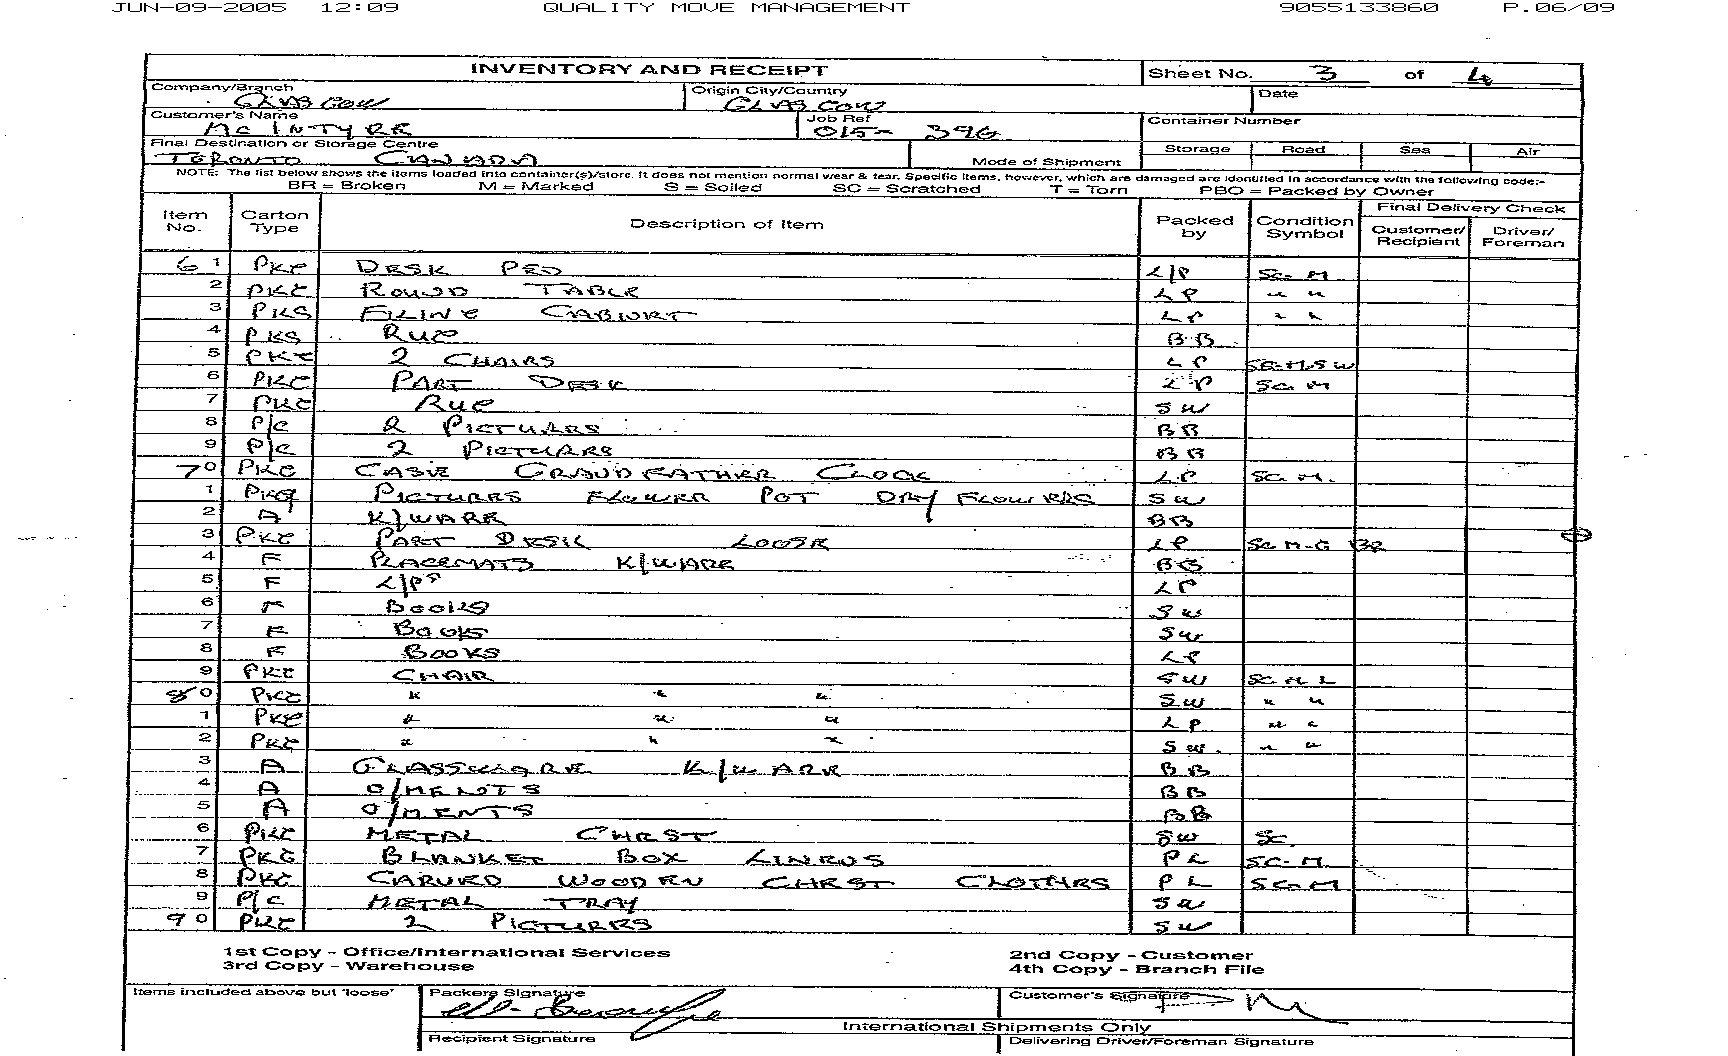 JUN-09-2005 12:09 QUALITY MOVE MANAGEMENT 9055133860 P.06/09
INVENTORY AND RECEIPT Sheet No. 3 of 4
Company/Branch Origin City/Country Date
GLASGOW GLASGOW
Customer's Name Job Ref Container Number
MCINTYRE 015- 396
Final Destination or Storage Centre Mode of Shipment Storage Road Sea Air
TERONTO CANADA
NOTE: The list below shows the items loaded into container(s)/store. It does not mention normal wear & tear. Specific items, however, which are damaged are identified in accordance with the following code:-
BR = Broken M = Marked S = Soiled SC = Scratched T = Torn PBO = Packed by Owner
Item No. Carton Type Description of Item Packed by Condition Symbol Final Delivery Check
Customer/Recipient Driver/Foreman
61 PKG DESK PED L/P SC. M
2 PKG ROUND TABLE LP " "
3 PKG FILING CABINET LP " "
4 PKG RUG BB
5 PKG 2 CHAIRS LP SC.M.SW
6 PKG PART DESK LP SC. M
7 PKG RUG SW
8 P/C 2 PICTURES BB
9 P/C 2 PICTURES BB
70 PKG CASE GRANDFATHER CLOCK LP SC. M.
1 PKG PICTURES FLOWER POT DRY FLOWERS SW
2 A K/WARE BB
3 PKG PART DESK LOOSE LP SC M-G BR
4 F PLACEMATS K/WARE BB
5 F L/PS LP
6 F BOOKS SW
7 F BOOKS SW
8 F BOOKS LP
9 PKG CHAIR SW SC M L
80 PKG " " " SW " "
1 PKG " " " LP " "
2 PKG " " " SW. " "
3 A GLASSWARE K/WARE BB
4 A O/MENTS BB
5 A O/MENTS BB
6 PKG METAL CHEST SW SC.
7 PKG BLANKET BOX LINENS PL SC-M
8 PKG CARVED WOODEN CHEST CLOTHES PL SC.M
9 P/C METAL TRAY SW
90 PKG 2 PICTURES SW
1st Copy - Office/International Services 2nd Copy - Customer
3rd Copy - Warehouse 4th Copy - Branch File
Items included above but 'loose' Packers Signature Customer's Signature
International Shipments Only
Recipient Signature Delivering Driver/Foreman Signature